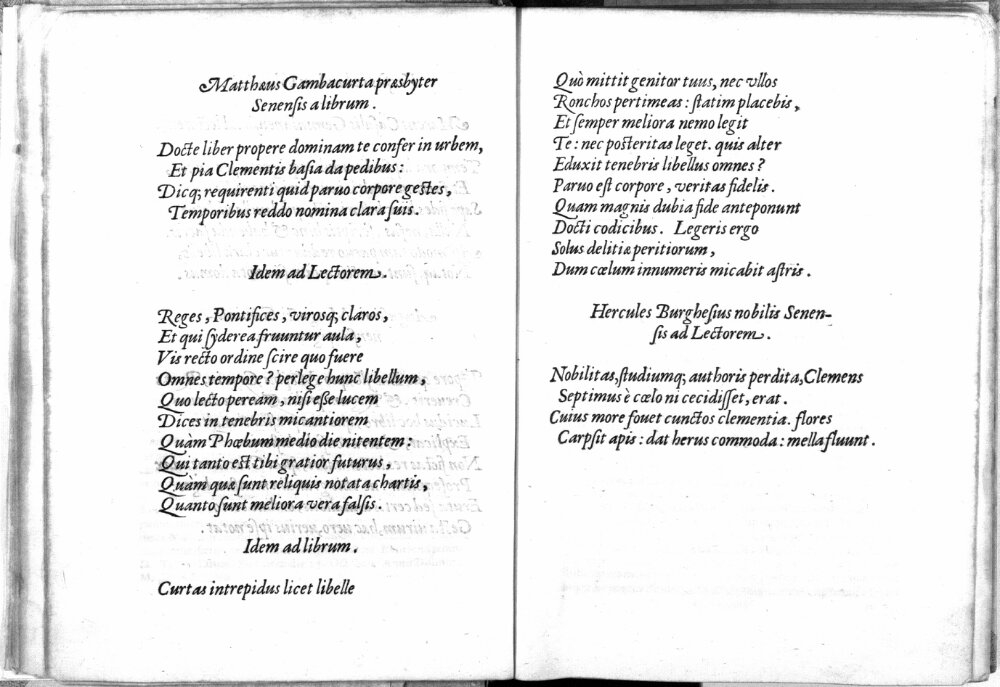 Matthæus Gambacurta præsbyter
Senensis a librum.
Docte liber propere dominam te confer in urbem,
Et pia Clementis basia da pedibus:
Dicq; requirenti quid paruo corpore gestes,
Temporibus reddo nomina clara suis.
Idem ad Lectorem.
Reges, Pontifices, virosq; claros,
Et qui syderea fruuntur aula,
Vis recto ordine scire quo fuere
Omnes tempore? perlege hunc libellum,
Quo lecto peream, nisi esse lucem
Dices in tenebris micantiorem
Quàm Phœbum medio die nitentem:
Qui tanto est tibi gratior futurus,
Quàm quæ sunt reliquis notata chartis,
Quanto sunt meliora vera falsis.
Idem ad librum.
Curtas intrepidus licet libelle
Quò mittit genitor tuus, nec vllos
Ronchos pertimeas: statim placebis,
Et semper meliora nemo legit
Te: nec posteritas leget. quis alter
Eduxit tenebris libellus omnes?
Paruo est corpore, veritas fidelis.
Quam magnis dubia fide anteponunt
Docti codicibus. Legeris ergo
Solus delitiæ peritiorum,
Dum cœlum innumeris micabit astris.
Hercules Burghesius nobilis Senen-
sis ad Lectorem.
Nobilitas, studiumq; authoris perdita, Clemens
Septimus è cœlo ni cecidisset, erat.
Cuius more fouet cunctos clementia. flores
Carpsit apis: dat herus commoda: mella fluunt.